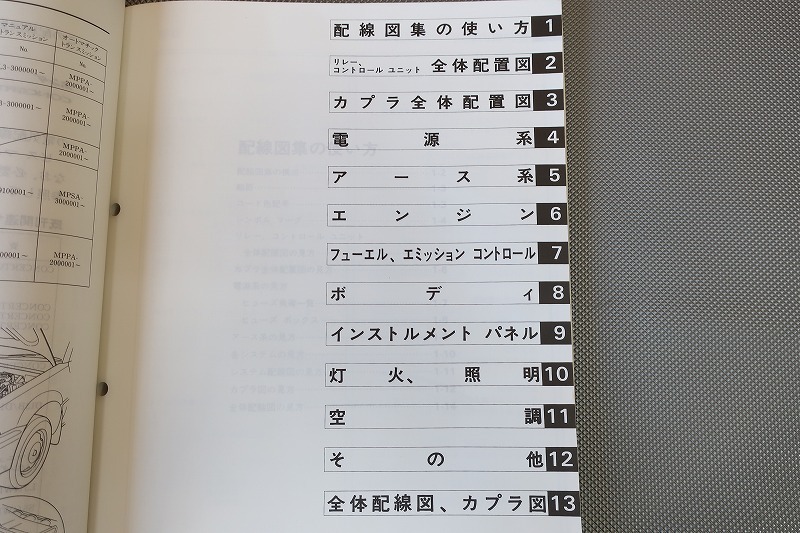 マニュアル
トランスミッション
オートマチック
トランスミッション
No.
No.
L3-3000001～
MPPA-
2000001～
3-3000001～
MPPA-
2000001～
0100001～
MPSA-
3000001～
0000001～
MPPA-
2000001～
配線図集の使い方 1
リレー、
コントロール ユニット 全体配置図 2
カプラ全体配置図 3
電源系 4
アース系 5
エンジン 6
フューエル、エミッション コントロール 7
ボディ 8
インストルメント パネル 9
灯火、照明 10
空調 11
その他 12
全体配線図、カプラ図 13
配線図集の使い方